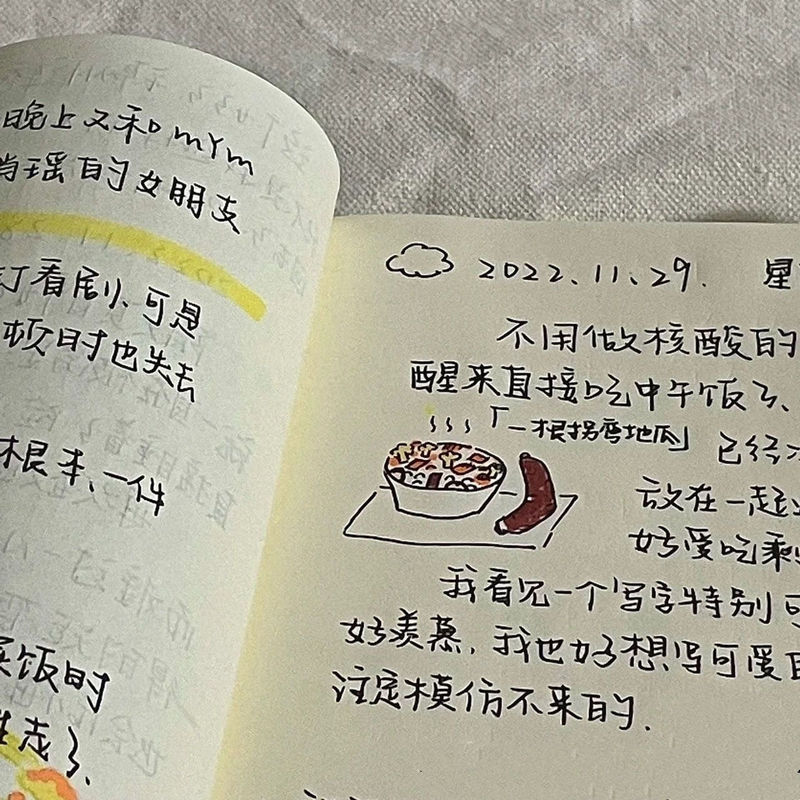 晚上又和mYm
瑶的女朋友
看剧、可是
顿时也失去
根本、一件
饭时
走了、
2022.11.29. 星
不用做核酸的
醒来直接吃中午饭了、
「一根拐弯地瓜」
已经
放在一起
好爱吃剩
我看见一个写字特别可
好羡慕,我也好想写可爱
注定模仿不来的.